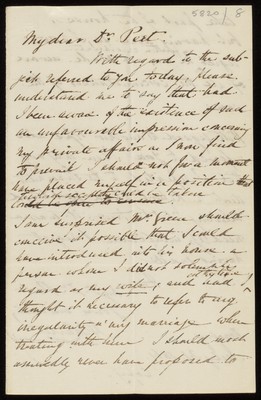 5820/8
My dear Dr. Peet.
With regard to the sub-
ject referred to you today, please
understand me to say that had
I been aware of the existence of such
an unfavourable impression concerning
my private affairs as I now find
to prevail I should not for a moment
have placed myself in a position
I am surprised Mr. Green should
conceive it possible that I could
have introduced into his house a
person whom I did not
regard as my wife; and had I
thought it necessary to refer to any
irregularity in my marriage when
treating with him I should most
assuredly never have proposed to